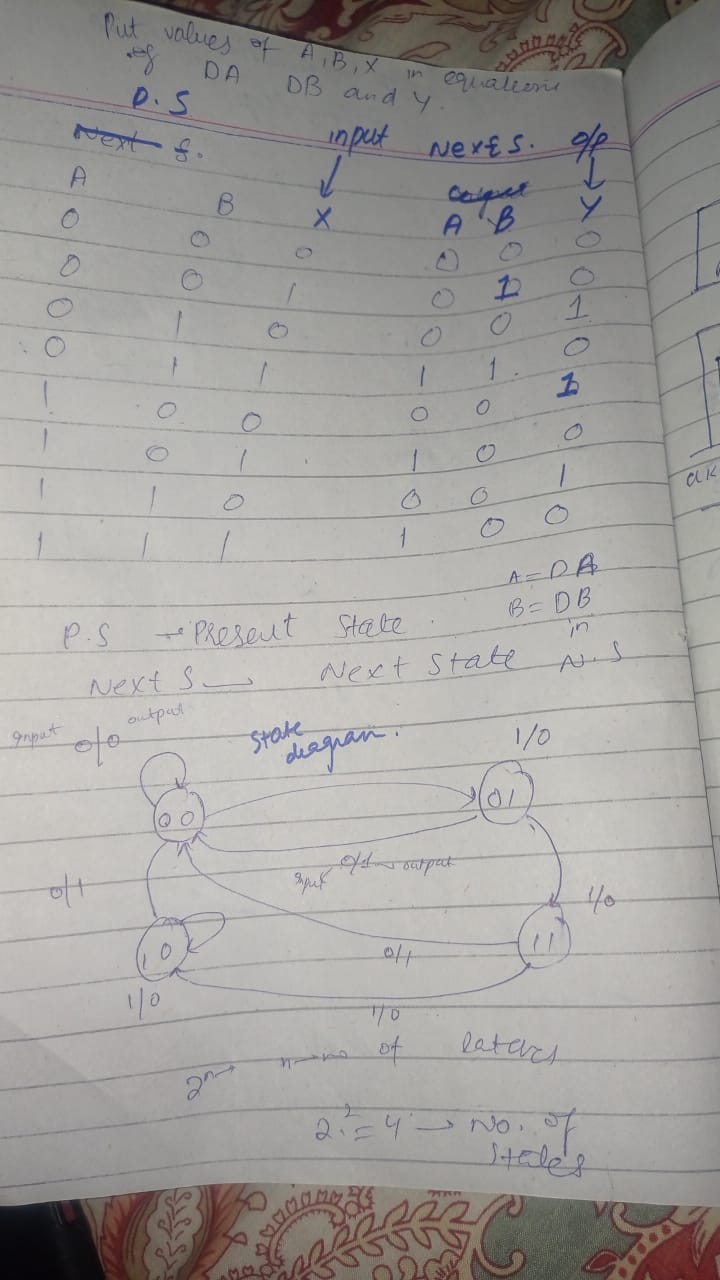 Put values of A, B, X in equations
of DA DB and Y.
P.S
Next S. input Next S. O/P
output
A B X A B Y
0 0 0 0 0 0
0 0 1 0 1 0
0 1 0 0 0 1
0 1 1 1 1. 0
1 0 0 0 0 1
1 0 1 1 0 0
1 1 0 0 0 1
1 1 1 1 0 0
A = DA
B = DB
in
N.S
P.S → Present State.
Next S → Next State
input 0/0 output
State
diagram.
1/0
00
01
input 0/1 → output
0/1
1/0
10
11
0/1
1/0
1/0
2ⁿ → n → no of
2² = 4 → No. of
States